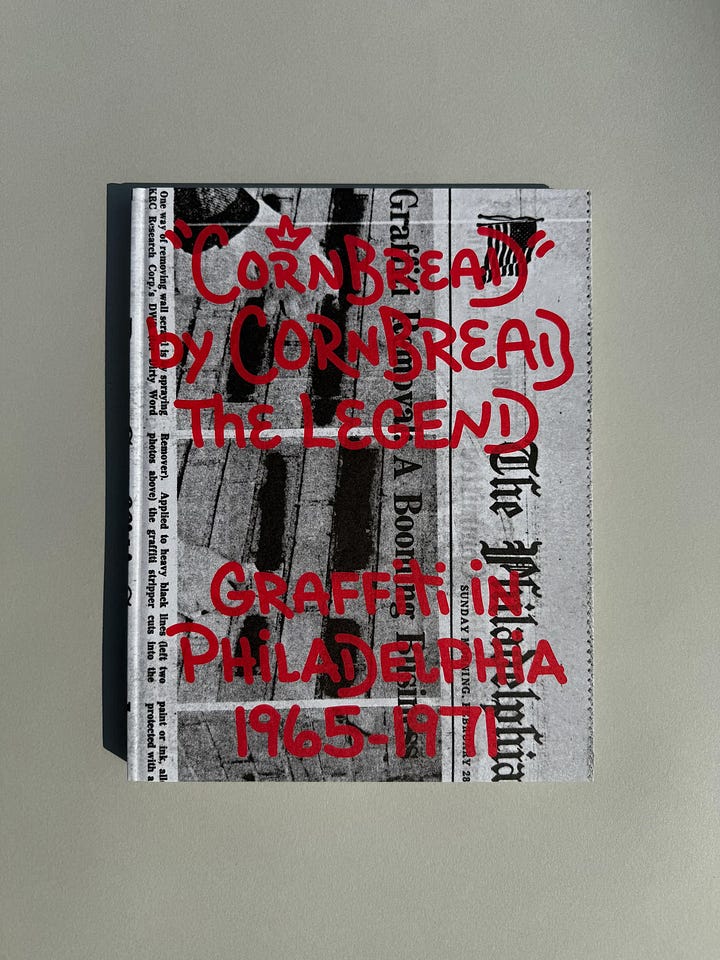 "CORNBREAD"
by CORNBREAD
The LEGEND
GRAFFiTi iN
PHiLADELPHiA
1965-1971
The Philadelphia
SUNDAY MORNING, FEBRUARY 28
Graffiti Removal: A Booming Business
One way of removing wall is by spraying Remover). Applied to heavy black paint or ink,
KRC Research Corp.'s Dirty Word photos above) the graffiti stripper cuts into the protected with a
lines (left two